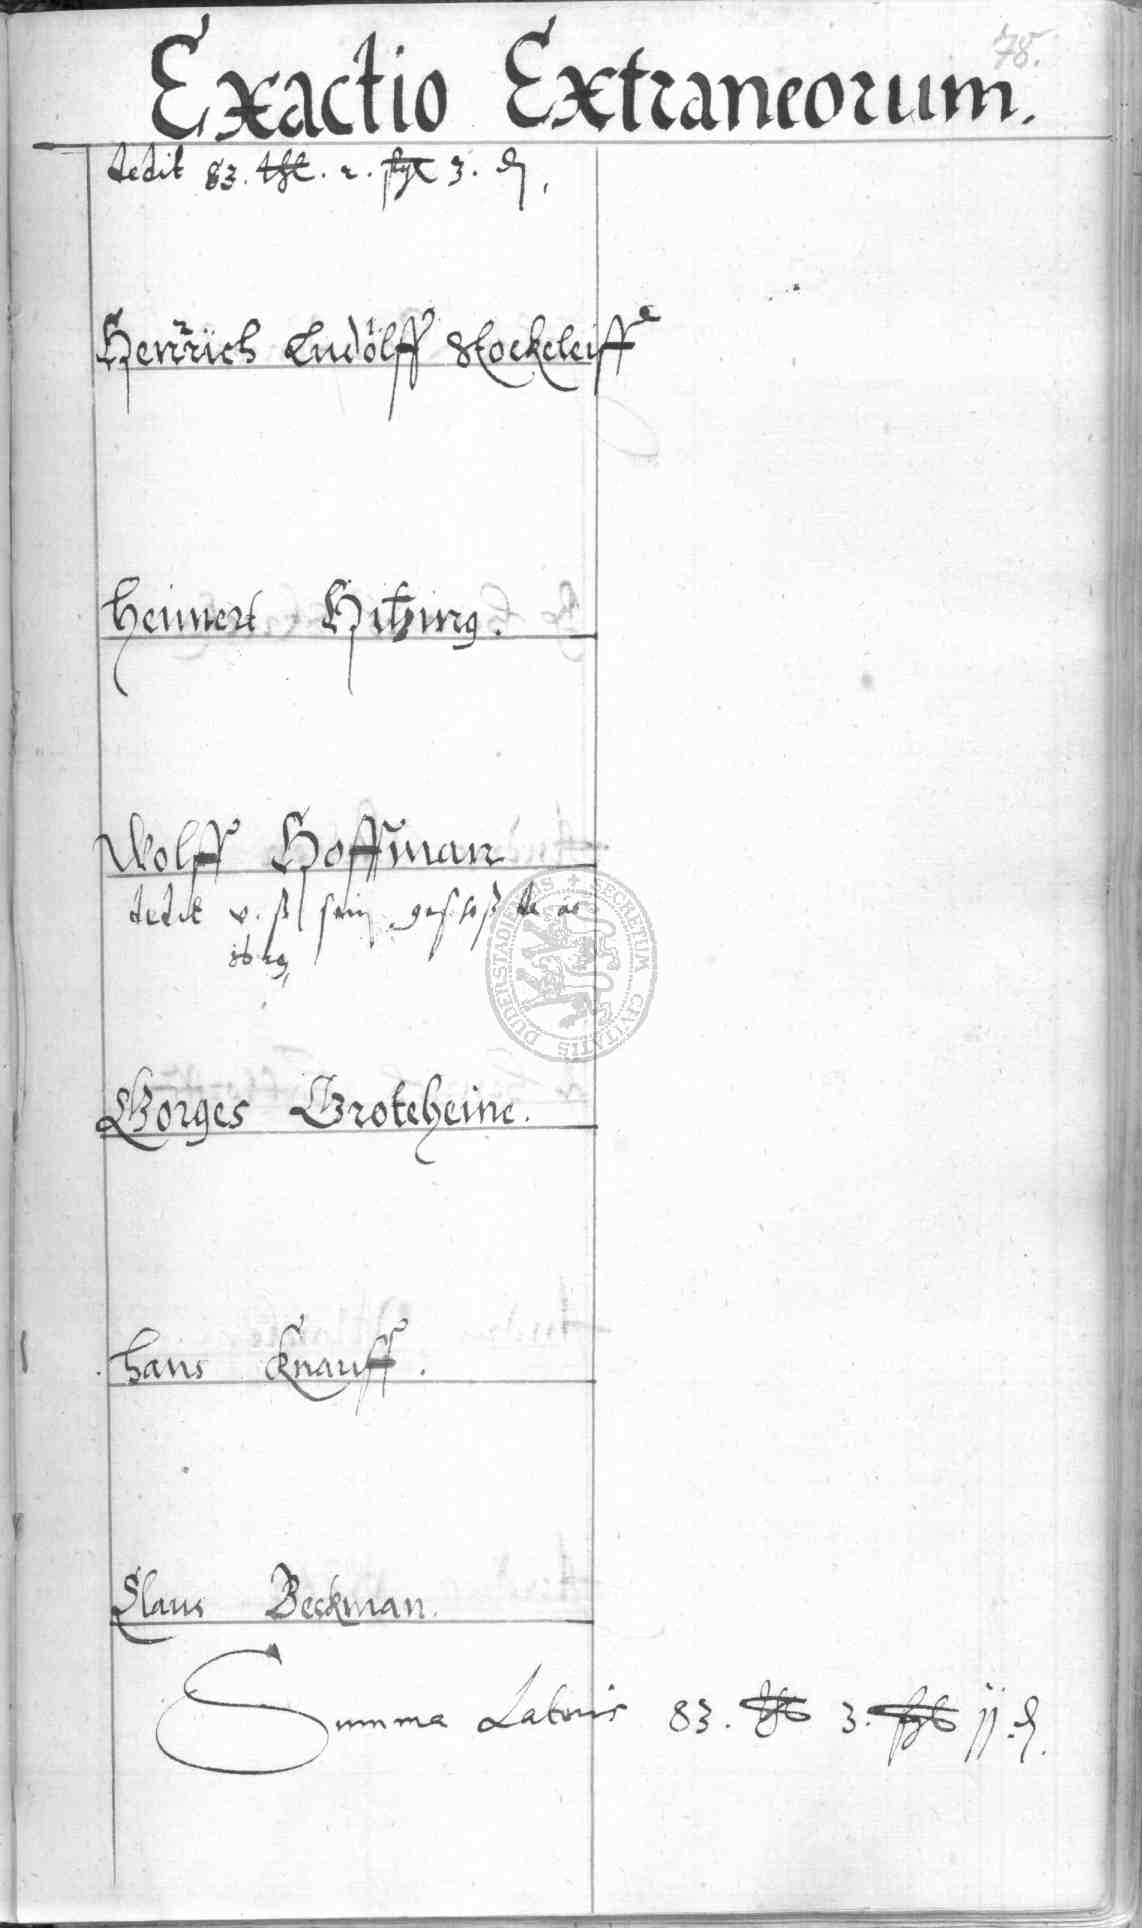 78.
Exactio Extraneorum.
dedit 83. 2. 3. ₰.
Henrich Ludolff Stockeleiff
Heinnert Hitzing.
Wolff Hoffman
dedit v. ß sein geschoß de ao
Gorges Groteheine.
Hans Knauff.
Claus Beckman.
Summa Lateris 83. 3. jj ₰.
SECRETUM CIVITATIS DUDERSTADIENSIS